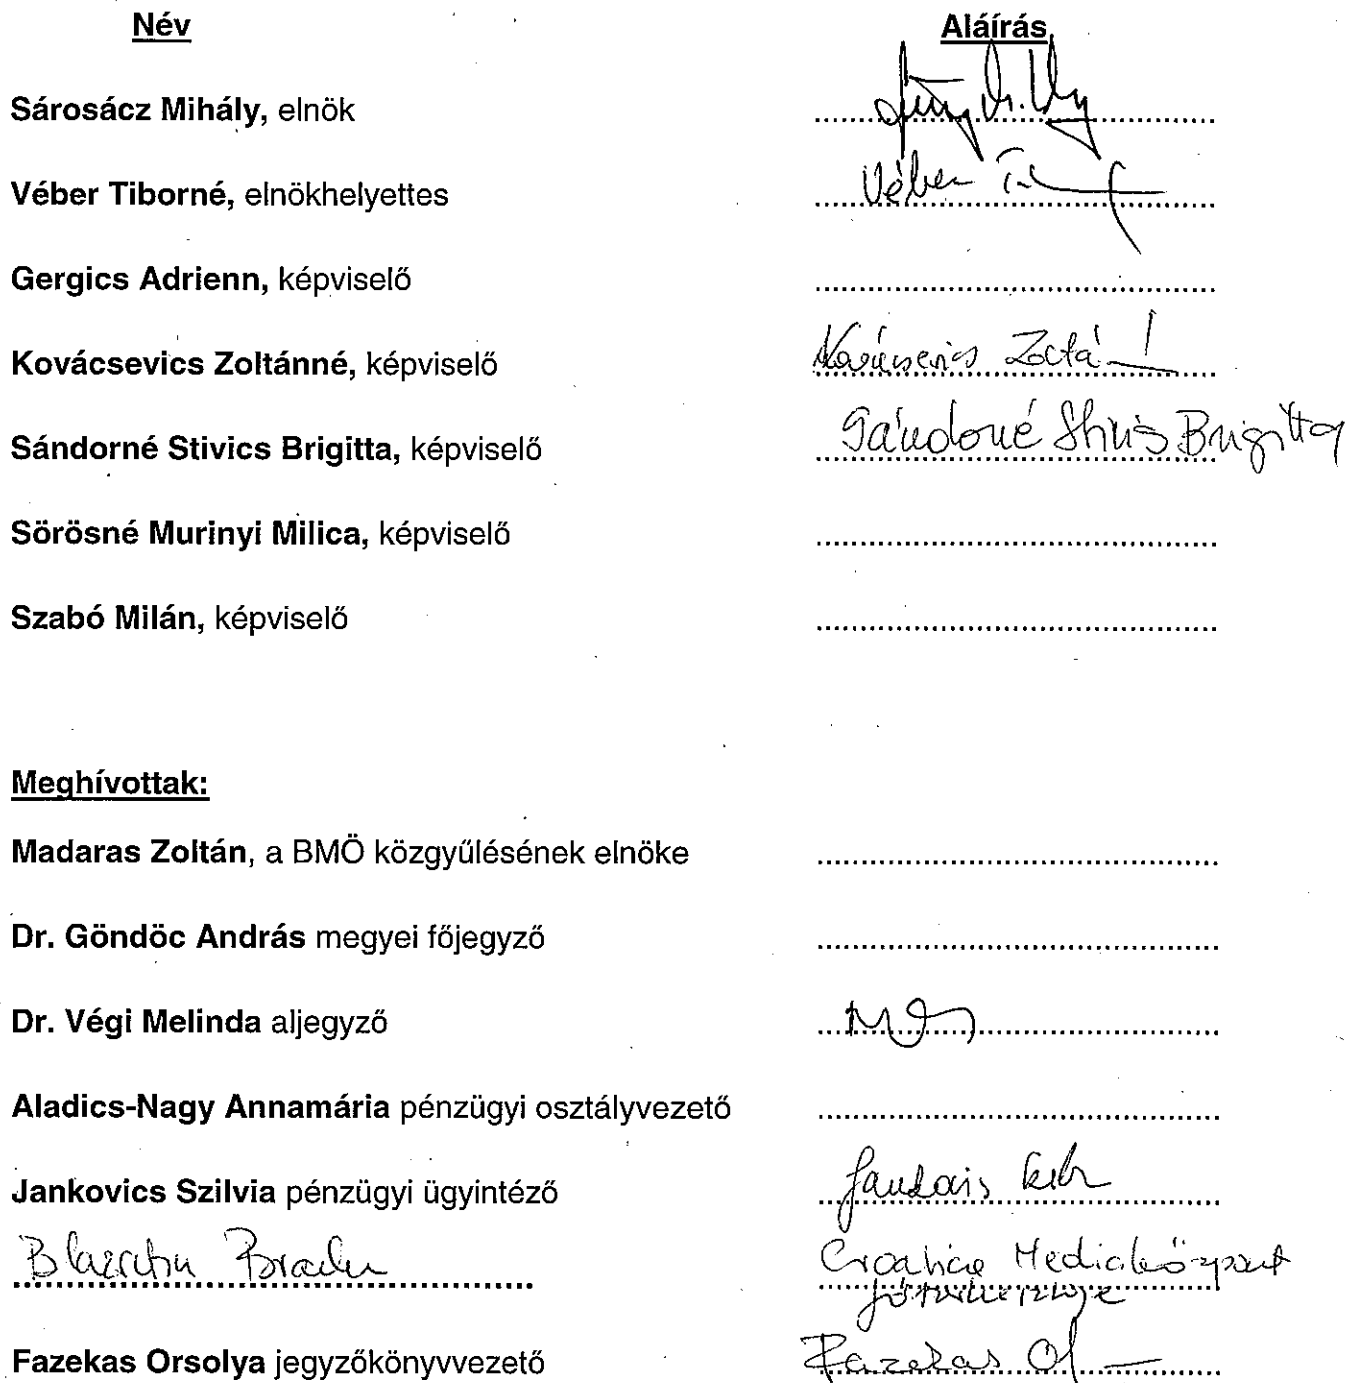 Név Aláírás
Sárosácz Mihály, elnök
Véber Tiborné, elnökhelyettes Véber
Gergics Adrienn, képviselő
Kovácsevics Zoltánné, képviselő Kovácsevics Zoltá
Sándorné Stivics Brigitta, képviselő Sándorné Stivics Brigitta
Sörösné Murinyi Milica, képviselő
Szabó Milán, képviselő
Meghívottak:
Madaras Zoltán, a BMÖ közgyűlésének elnöke
Dr. Göndöc András megyei főjegyző
Dr. Végi Melinda aljegyző
Aladics-Nagy Annamária pénzügyi osztályvezető
Jankovics Szilvia pénzügyi ügyintéző
Croatica Mediaközpont
Fazekas Orsolya jegyzőkönyvvezető Fazekas